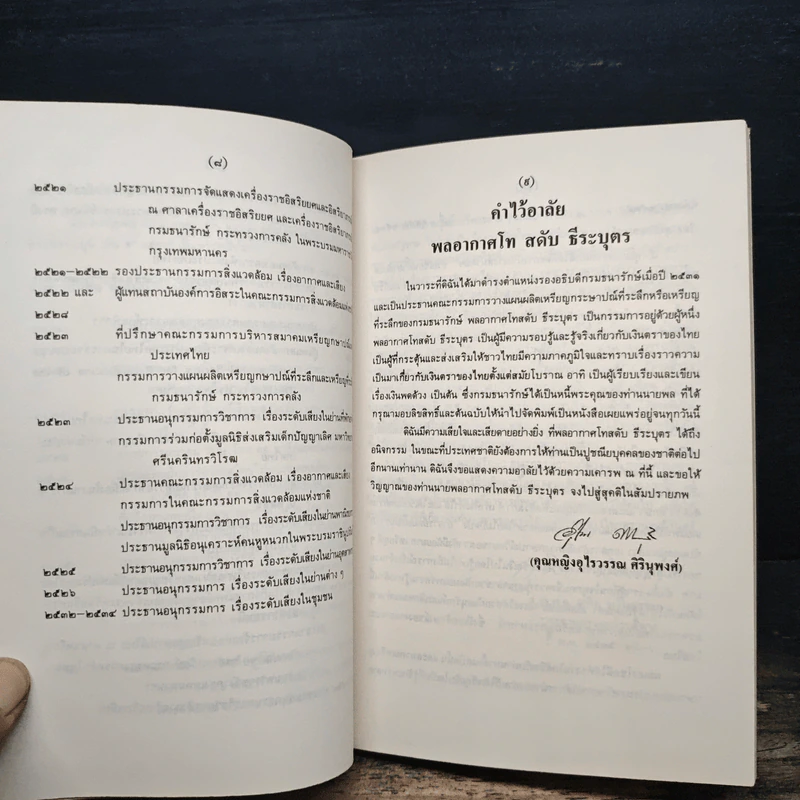 (๘)
๒๕๒๑ ประธานกรรมการจัดแสดงเครื่องราชอิสริยยศและอิสริยาภรณ์
ณ ศาลาเครื่องราชอิสริยยศ และเครื่องราชอิสริยาภรณ์
กรมธนารักษ์ กระทรวงการคลัง ในพระบรมมหาราชวัง
กรุงเทพมหานคร
๒๕๒๑–๒๕๒๒ รองประธานกรรมการสิ่งแวดล้อม เรื่องอากาศและเสียง
๒๕๒๒ และ ผู้แทนสถาบันองค์การอิสระในคณะกรรมการสิ่งแวดล้อมแห่งชาติ
๒๕๒๘
๒๕๒๓ ที่ปรึกษาคณะกรรมการบริหารสมาคมเหรียญกษาปณ์
ประเทศไทย
กรรมการวางแผนผลิตเหรียญกษาปณ์ที่ระลึกและเหรียญที่
กรมธนารักษ์ กระทรวงการคลัง
๒๕๒๓ ประธานอนุกรรมการวิชาการ เรื่องระดับเสียงในย่านที่พัก
กรรมการร่วมก่อตั้งมูลนิธิส่งเสริมเด็กปัญญาเลิศ มหาวิท
ศรีนครินทรวิโรฒ
๒๕๒๔ ประธานคณะกรรมการสิ่งแวดล้อม เรื่องอากาศและเสียง
กรรมการในคณะกรรมการสิ่งแวดล้อมแห่งชาติ
ประธานอนุกรรมการวิชาการ เรื่องระดับเสียงในย่านพาณิชย
ประธานมูลนิธิอนุเคราะห์คนหูหนวกในพระบรมราชินูปถัมภ์
๒๕๒๕ ประธานอนุกรรมการวิชาการ เรื่องระดับเสียงในย่านอุตสาห
๒๕๒๖ ประธานอนุกรรมการวิชาการ เรื่องระดับเสียงในย่านต่าง ๆ
๒๕๓๒–๒๕๓๔ ประธานอนุกรรมการ เรื่องระดับเสียงในชุมชน
(๙)
คำไว้อาลัย
พลอากาศโท สดับ ธีระบุตร
ในวาระที่ดิฉันได้มาดำรงตำแหน่งรองอธิบดีกรมธนารักษ์เมื่อปี ๒๕๓๑
และเป็นประธานคณะกรรมการวางแผนผลิตเหรียญกระษาปณ์ที่ระลึกหรือเหรียญ
ที่ระลึกของกรมธนารักษ์ พลอากาศโทสดับ ธีระบุตร เป็นกรรมการอยู่ด้วยผู้หนึ่ง
พลอากาศโทสดับ ธีระบุตร เป็นผู้มีความรอบรู้และรู้จริงเกี่ยวกับเงินตราของไทย
เป็นผู้ที่กระตุ้นและส่งเสริมให้ชาวไทยมีความภาคภูมิใจและทราบเรื่องราวความ
เป็นมาเกี่ยวกับเงินตราของไทยตั้งแต่สมัยโบราณ อาทิ เป็นผู้เรียบเรียงและเขียน
เรื่องเงินพดด้วง เป็นต้น ซึ่งกรมธนารักษ์ได้เป็นหนี้พระคุณของท่านนายพล ที่ได้
กรุณามอบลิขสิทธิ์และต้นฉบับให้นำไปจัดพิมพ์เป็นหนังสือเผยแพร่อยู่จนทุกวันนี้
ดิฉันมีความเสียใจและเสียดายอย่างยิ่ง ที่พลอากาศโทสดับ ธีระบุตร ได้ถึง
อนิจกรรม ในขณะที่ประเทศชาติยังต้องการให้ท่านเป็นปูชนียบุคคลของชาติต่อไป
อีกนานเท่านาน ดิฉันจึงขอแสดงความอาลัยไว้ด้วยความเคารพ ณ ที่นี้ และขอให้
วิญญาณของท่านนายพลอากาศโทสดับ ธีระบุตร จงไปสู่สุคติในสัมปรายภพ
(คุณหญิงอุไรวรรณ ศิรินุพงศ์)